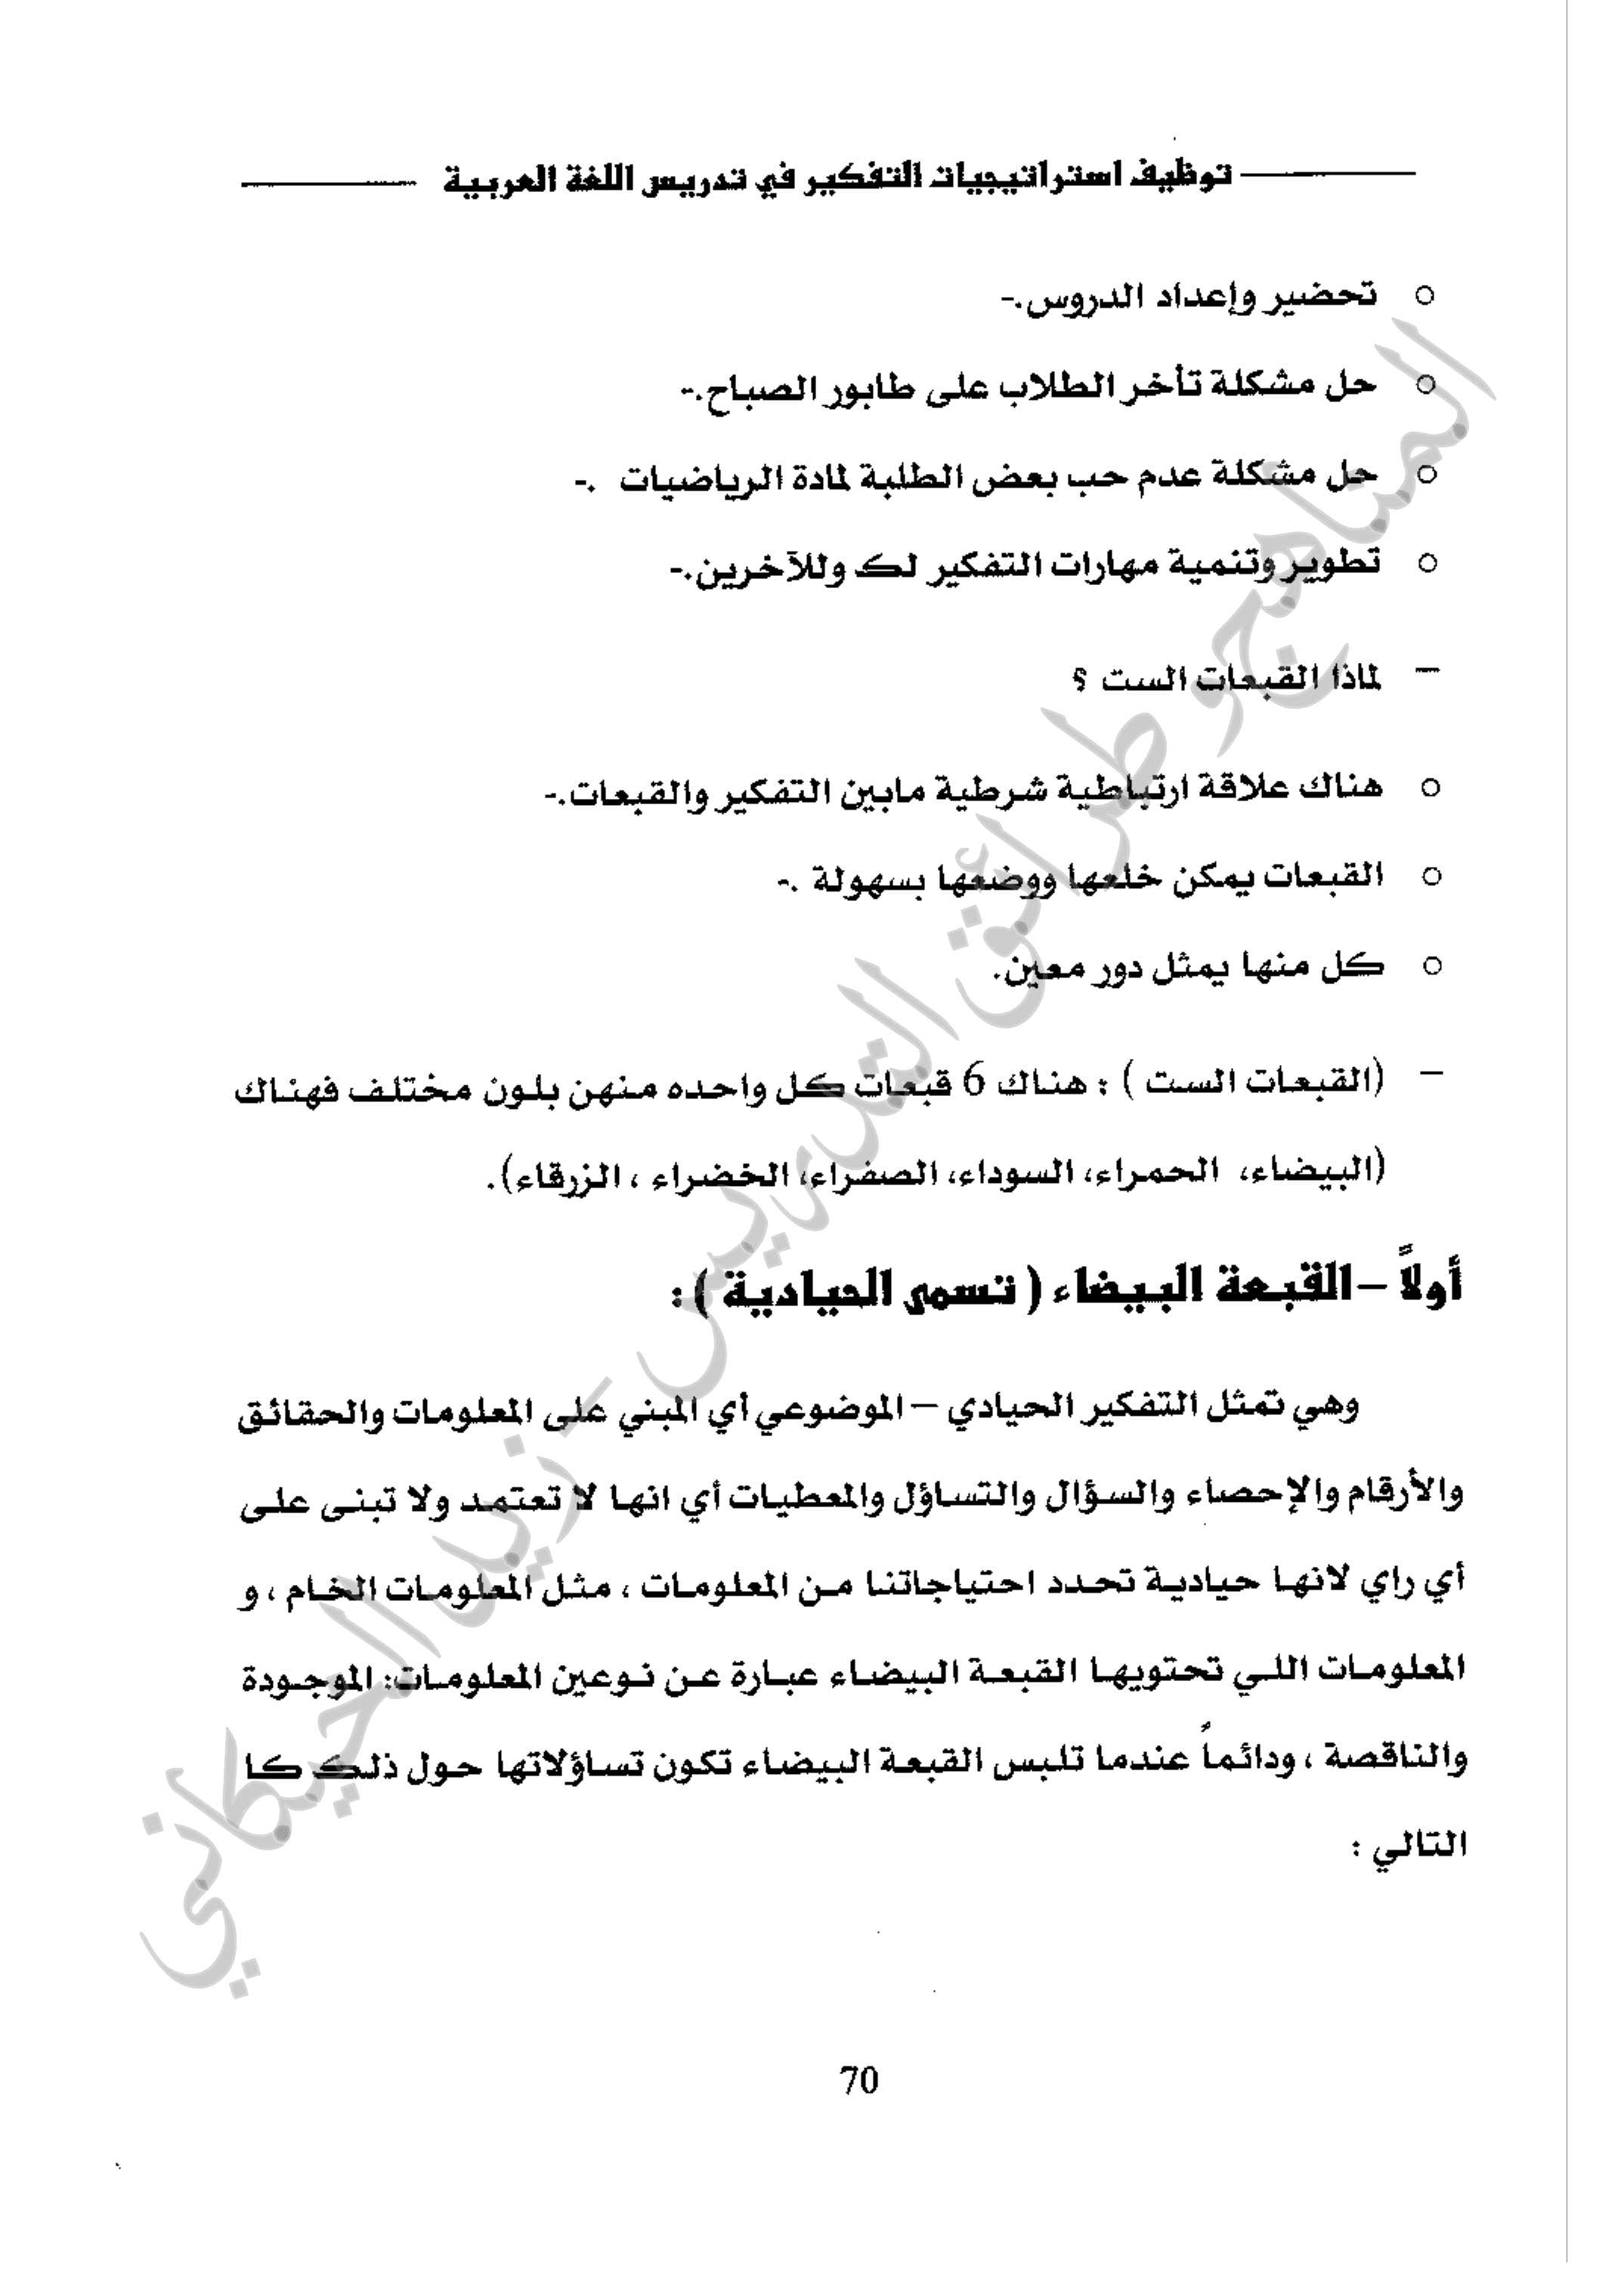 توظيف استراتيجيات التفكير في تدريس اللغة العربية
○ تحضير وإعداد الدروس.-
○ حل مشكلة تأخر الطلاب على طابور الصباح.-
○ حل مشكلة عدم حب بعض الطلبة لمادة الرياضيات .-
○ تطوير وتنمية مهارات التفكير لك وللآخرين.-
– لماذا القبعات الست ؟
○ هناك علاقة ارتباطية شرطية مابين التفكير والقبعات.-
○ القبعات يمكن خلعها ووضعها بسهولة .-
○ كل منها يمثل دور معين.
– (القبعات الست ) : هناك 6 قبعات كل واحده منهن بلون مختلف فهناك
(البيضاء، الحمراء، السوداء، الصفراء، الخضراء ، الزرقاء).
أولاً – القبعة البيضاء ( تسمى الحيادية ) :
وهي تمثل التفكير الحيادي – الموضوعي أي المبني على المعلومات والحقائق
والأرقام والإحصاء والسؤال والتساؤل والمعطيات أي انها لا تعتمد ولا تبنى على
أي راي لانها حيادية تحدد احتياجاتنا من المعلومات ، مثل المعلومات الخام ، و
المعلومات اللي تحتويها القبعة البيضاء عبارة عن نوعين المعلومات: الموجودة
والناقصة ، ودائماً عندما تلبس القبعة البيضاء تكون تساؤلاتها حول ذلك كا
التالي :
70
المناهج و طرائق التدريس – زيد الحيكاني